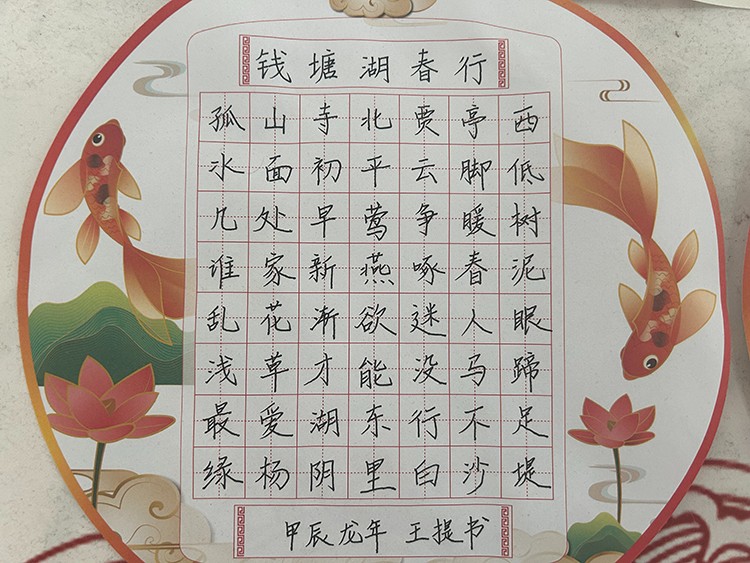 钱塘湖春行
孤山寺北贾亭西
水面初平云脚低
几处早莺争暖树
谁家新燕啄春泥
乱花渐欲迷人眼
浅草才能没马蹄
最爱湖东行不足
缘杨阴里白沙堤
甲辰龙年 王提书